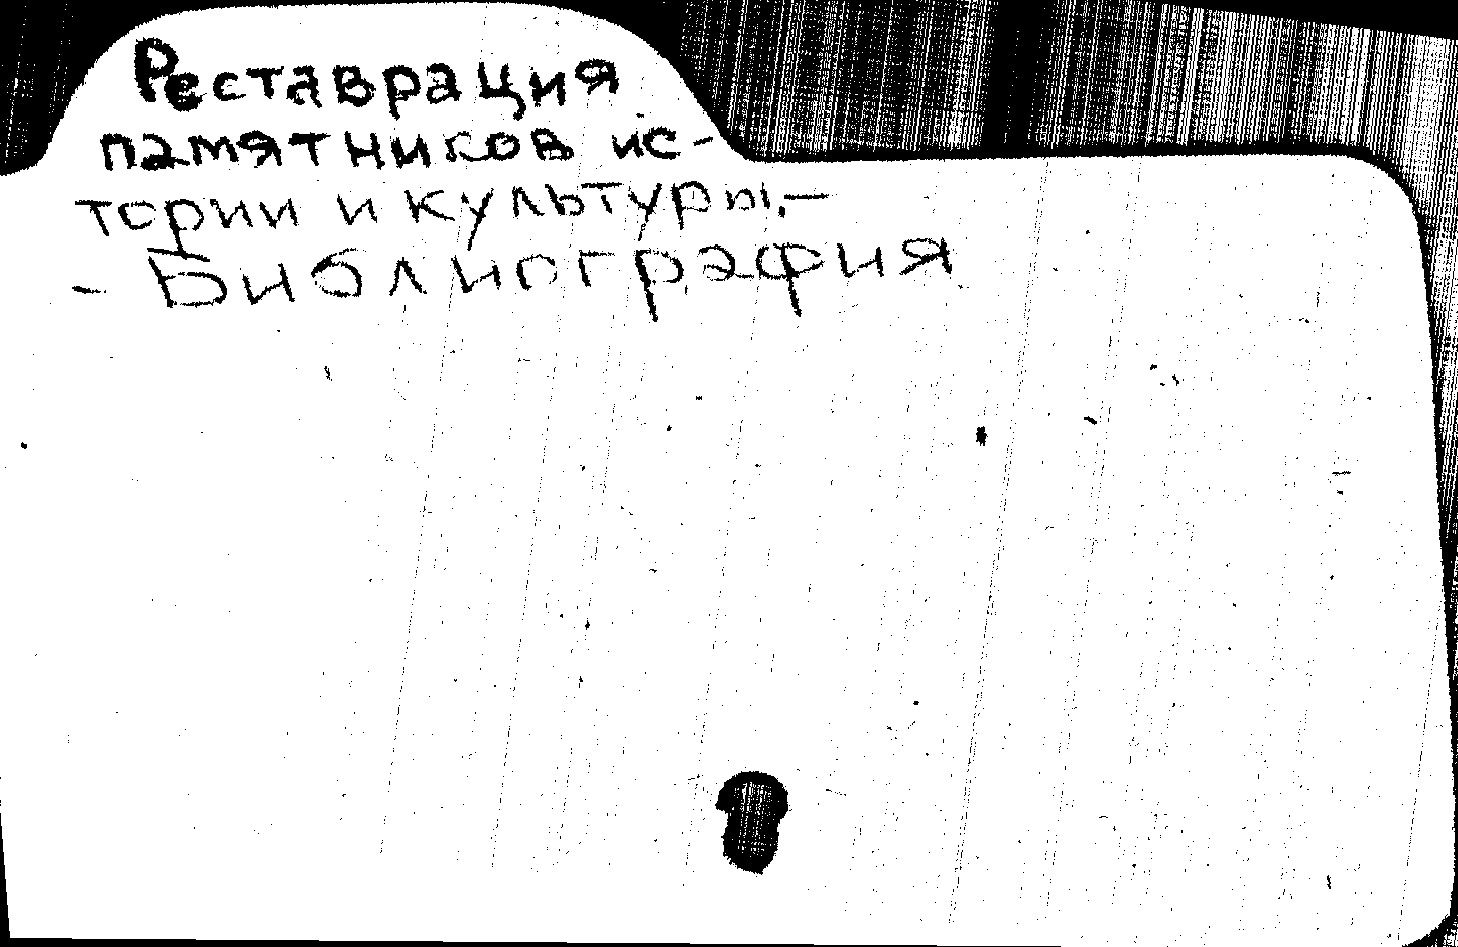 Реставрация
памятников ис-
тории и культуры,—
- Библиография